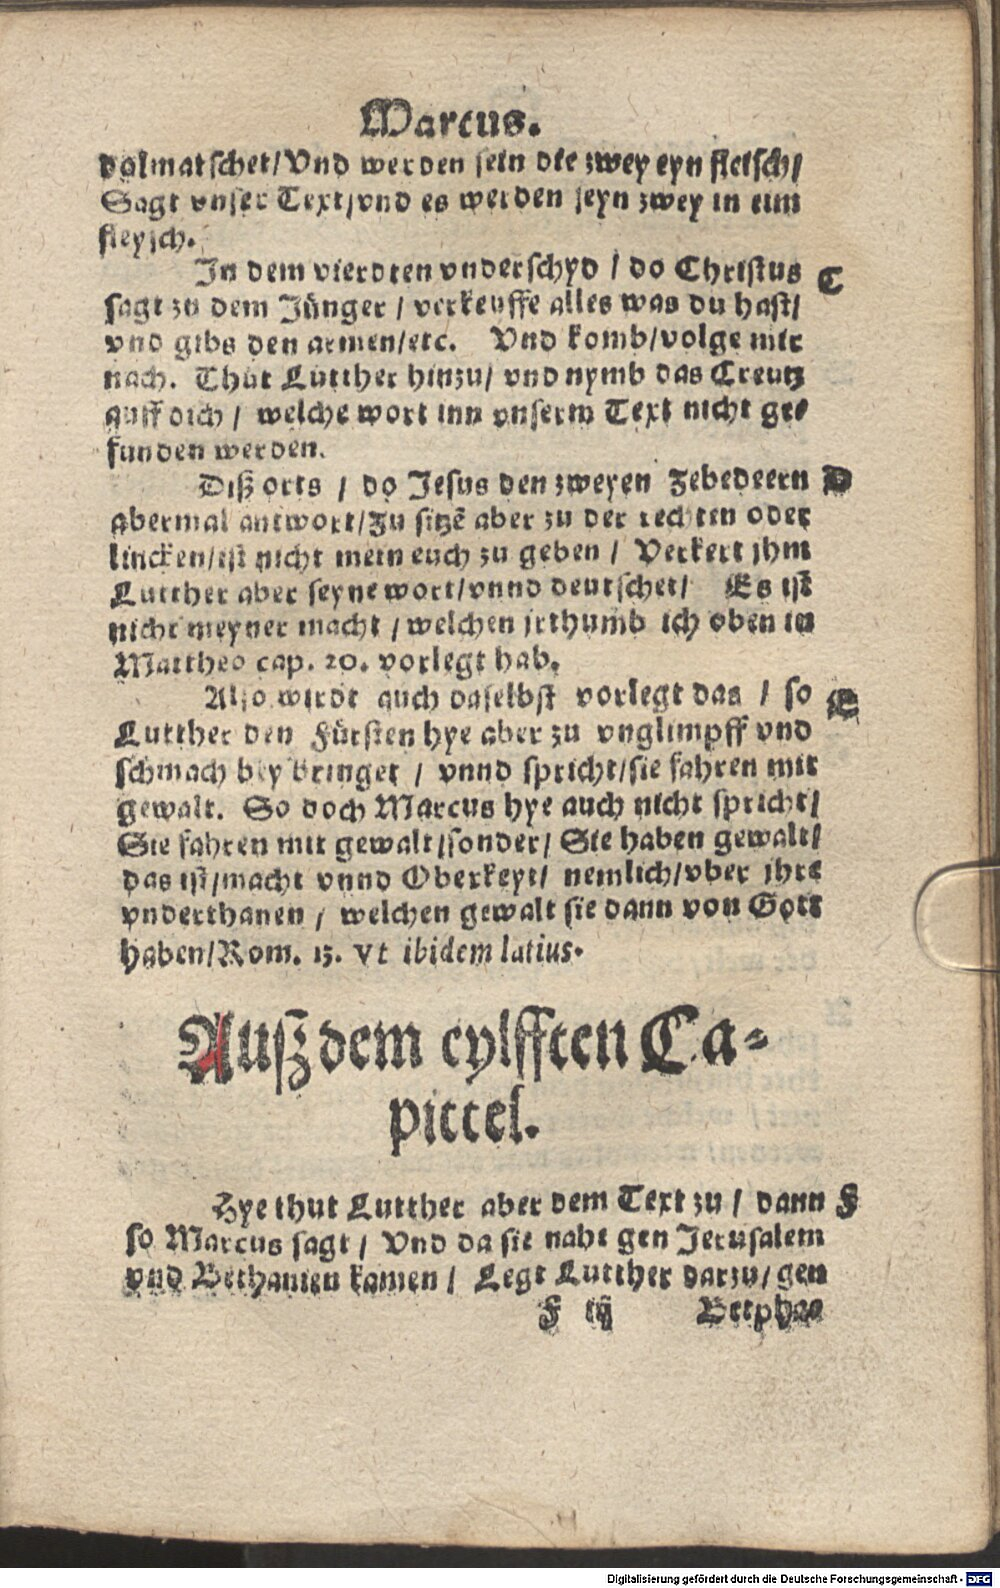 Marcus.
dolmatschet/Vnd werden sein die zwey eyn fleisch/
Sagt vnser Text/vnd es werden seyn zwey in eim
fleysch.
In dem vierdten vnderschyd / do Christus C
sagt zu dem Jünger / verkeuffe alles was du hast/
vnd gibs den armen/etc. Vnd komb/volge mir
nach. Thut Lutther hinzu/ vnd nymb das Creutz
auff dich / welche wort inn vnserm Text nicht ge-
funden werden.
Diß orts / do Jesus den zweyen Zebedeern D
abermal antwort/Zu sitzē aber zu der rechten oder
lincken/ist nicht mein euch zu geben / Verkert jhm
Lutther aber seyne wort/vnnd deutschet/ Es ist
nicht meyner macht / welchen jrthumb ich oben in
Mattheo cap. 20. vorlegt hab.
Also wirdt auch daselbst vorlegt das / so E
Lutther den Fürsten hye aber zu vnglimpff vnd
schmach bey bringet / vnnd spricht/sie fahren mit
gewalt. So doch Marcus hye auch nicht spricht/
Sie fahren mit gewalt/sonder/ Sie haben gewalt/
das ist/macht vnnd Oberkeyt/ nemlich/vber jhre
vnderthanen / welchen gewalt sie dann von Gott
haben/Rom. 13. Vt ibidem latius.
Auß dem eylfften Ca-
pittel.
Hye thut Lutther aber dem Text zu / dann F
so Marcus sagt / Vnd da sie nahe gen Jerusalem
vnd Bethanien kamen / Legt Lutther darzu/ gen
F iij Betphae
Digitalisierung gefördert durch die Deutsche Forschungsgemeinschaft - DFG